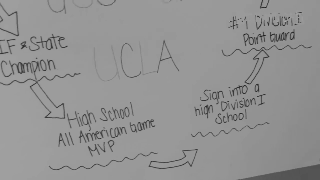 UCLA
IF & State
Champion
High School
All American Game
MVP
Sign into a
high Division I
School
#1 Division I
Point Guard